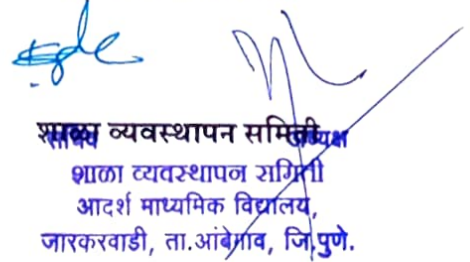 शाळा व्यवस्थापन समिती
सचिव अध्यक्ष
शाळा व्यवस्थापन समिती
आदर्श माध्यमिक विद्यालय,
जारकरवाडी, ता.आंबेगाव, जि.पुणे.